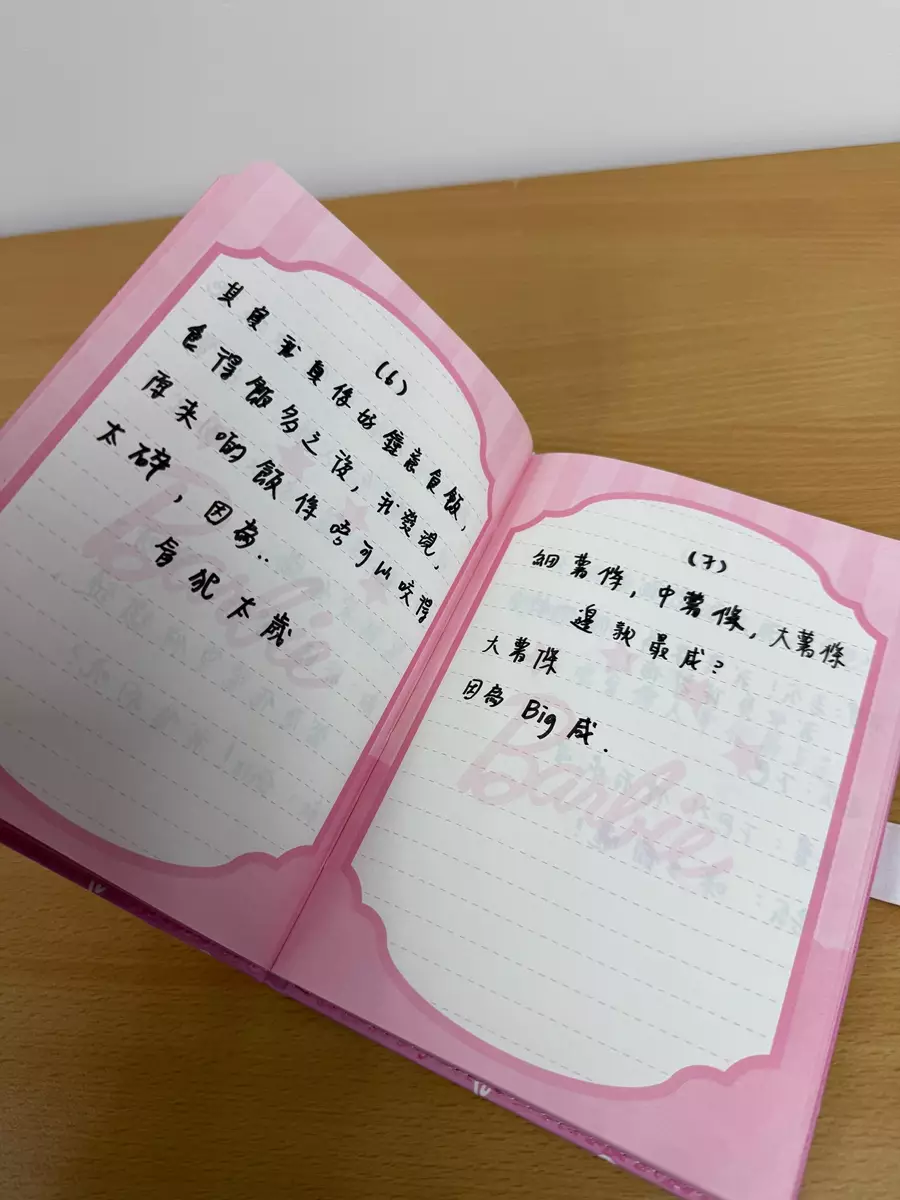 (6)
其實我真係好鐘意食飯,
食得飯多之後, 我發現,
原來啲飯係唔可以咬得
太碎, 因為..
會犯太歲
Barbie
(7)
細薯條, 中薯條, 大薯條
邊款最咸?
大薯條
因為 Big 咸.
Barbie